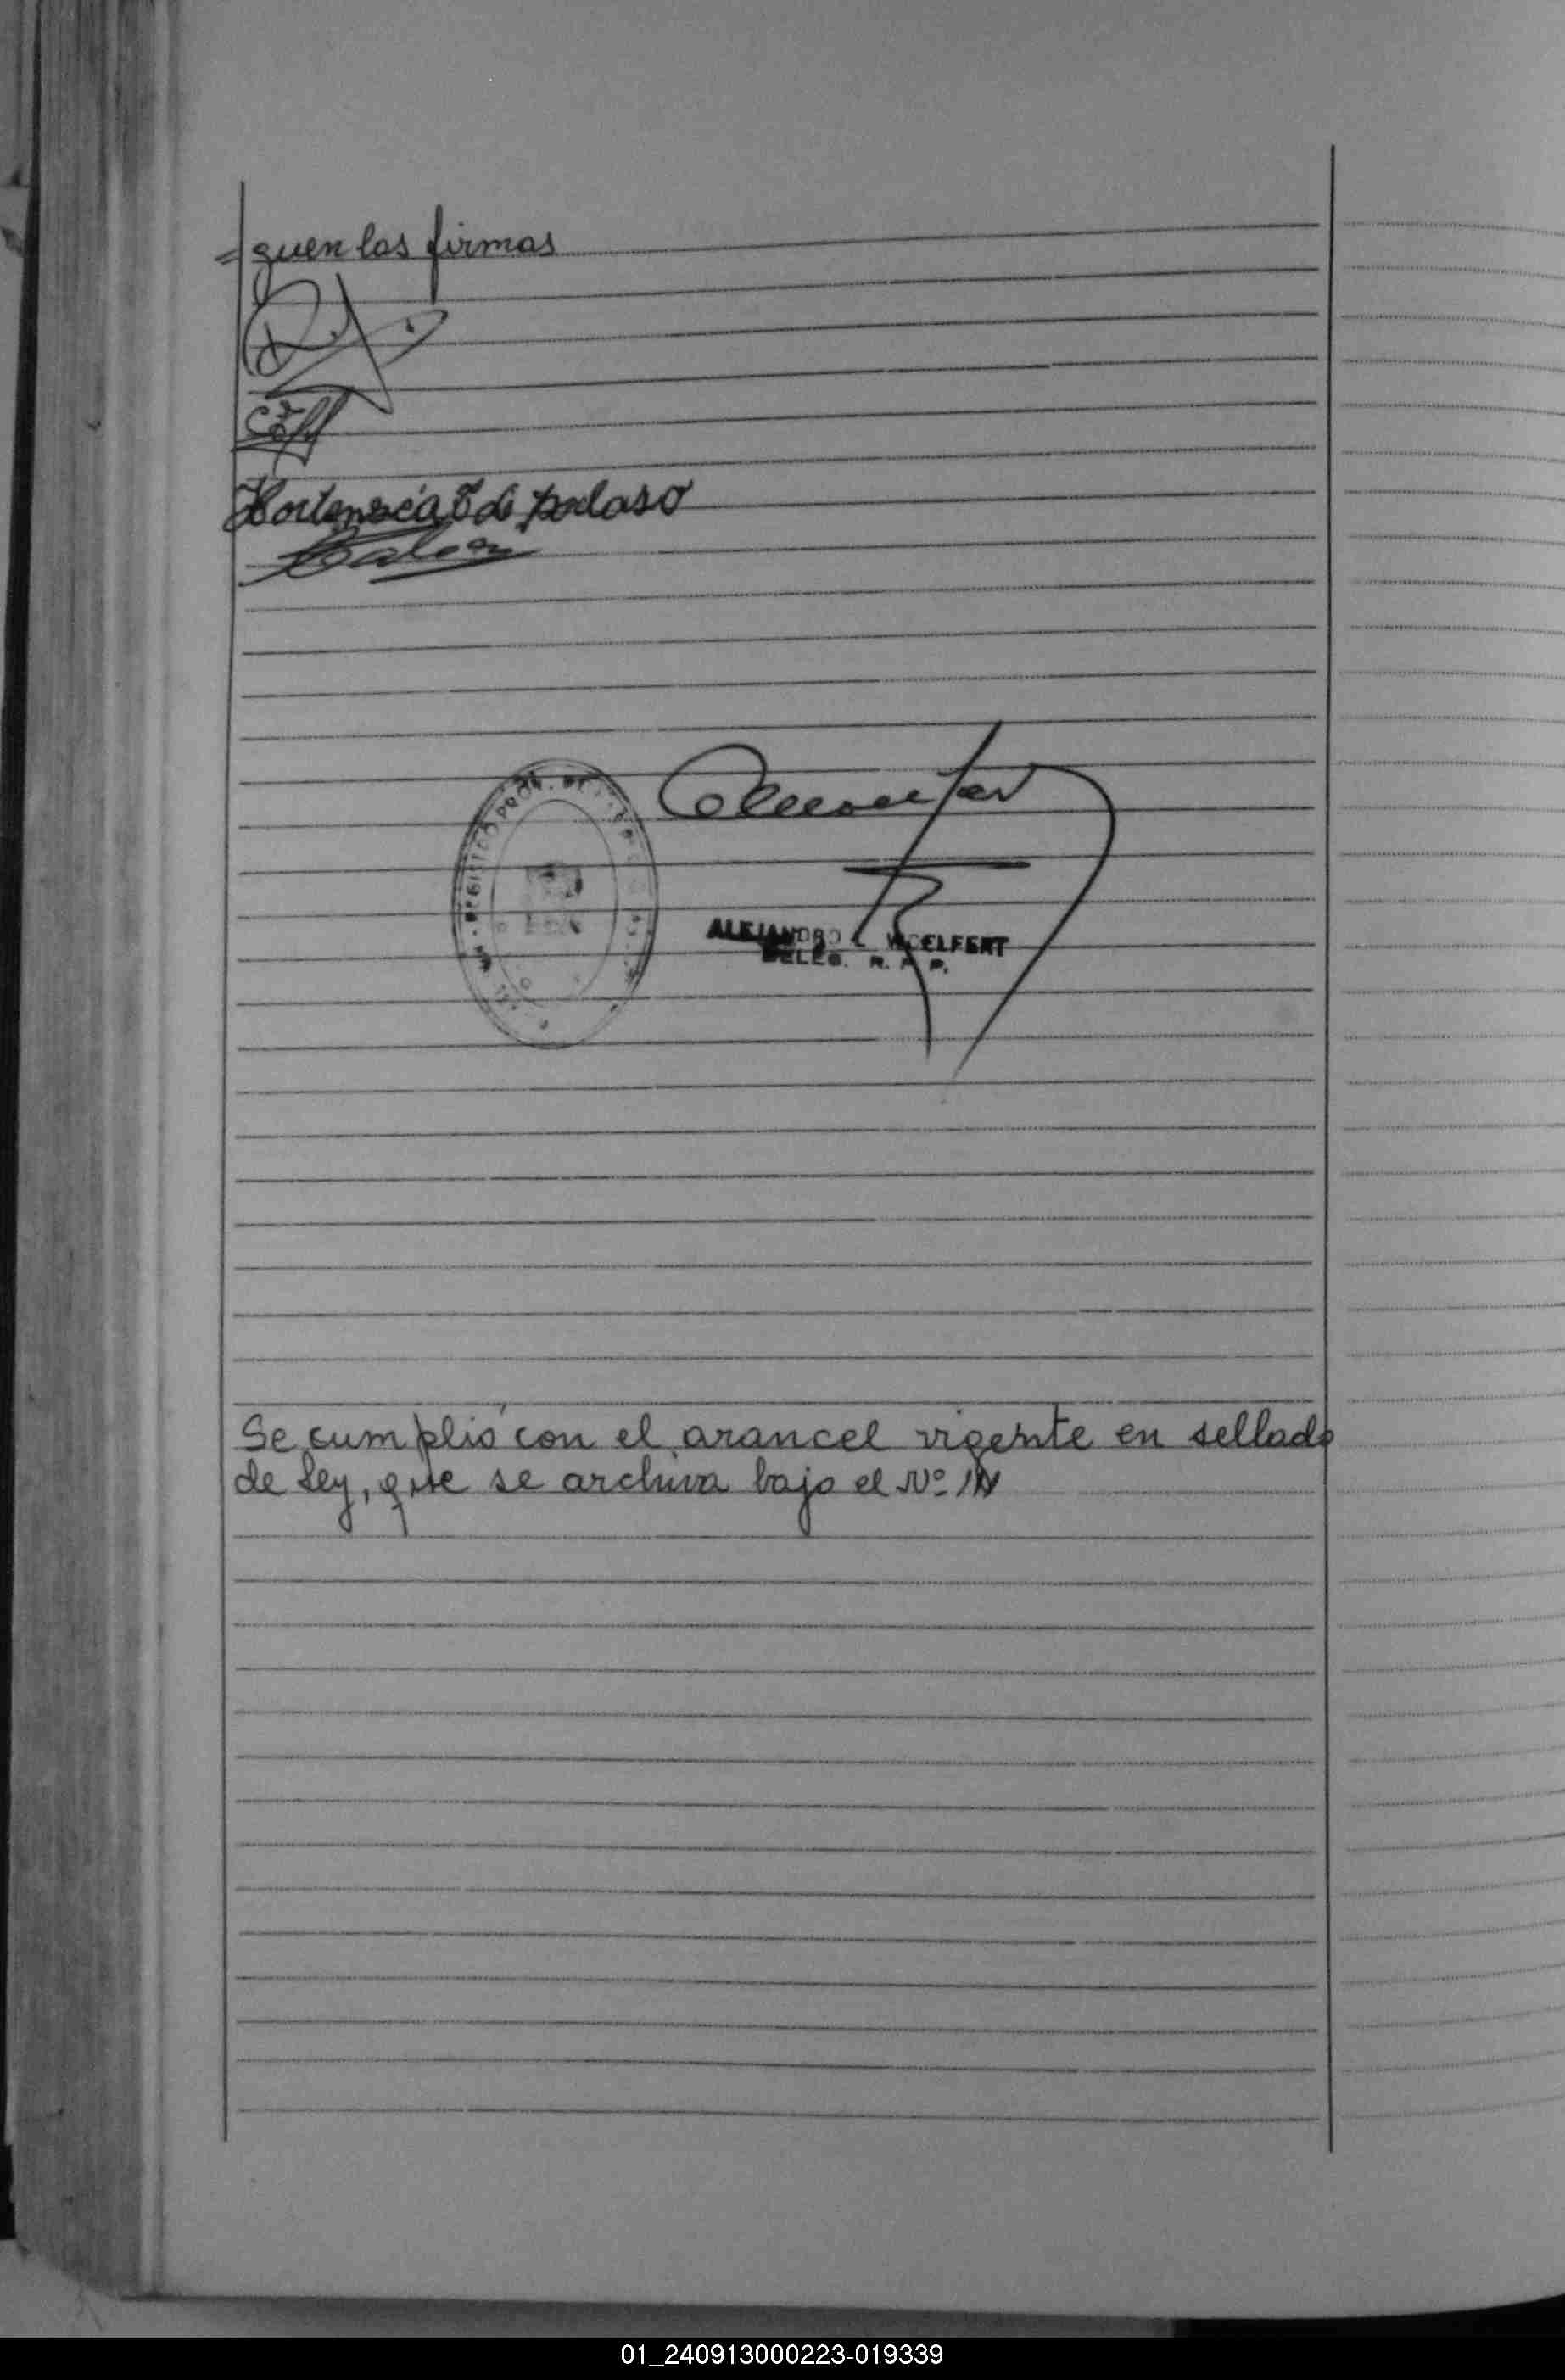 =guen las firmas
Hortensia T de pedaso
REGISTRO PROV. DE
ALEJANDRO L WOELFERT
DELEG. R. P. P.
Se cumplió con el arancel vigente en sellado
de Ley, que se archiva bajo el Nº
01_240913000223-019339